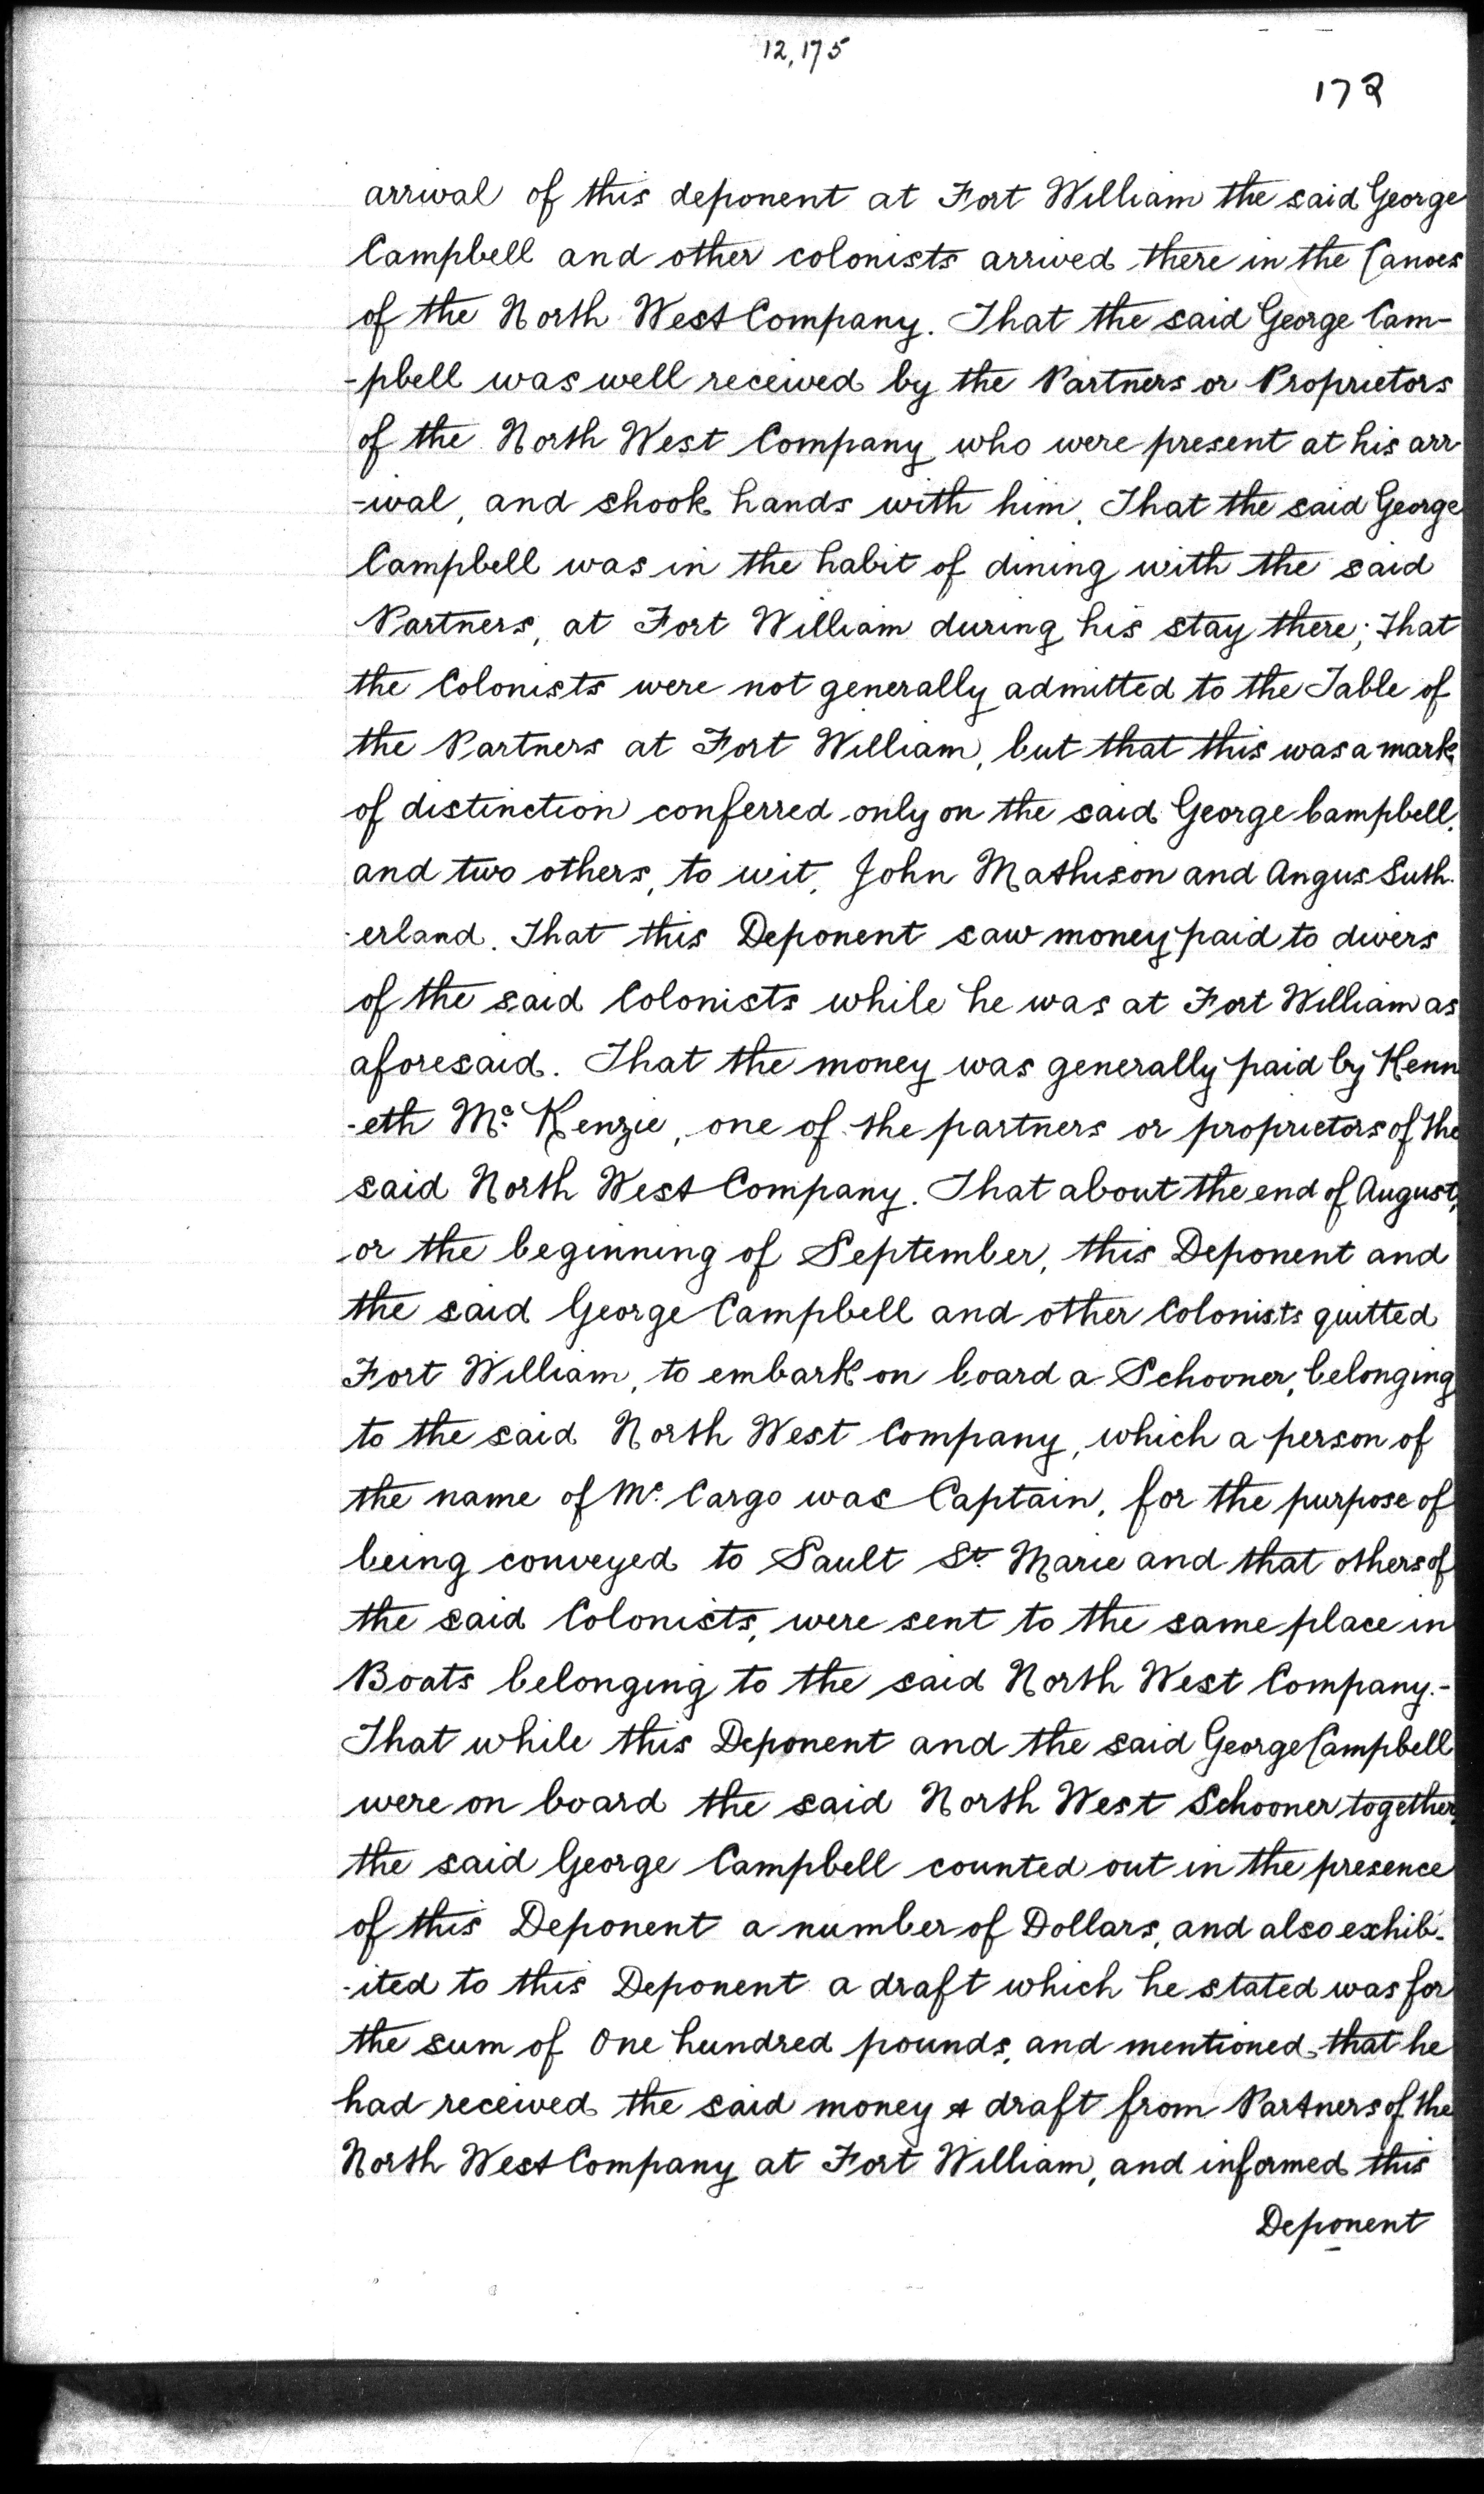 12,175
173
arrival of this deponent at Fort William the said George
Campbell and other colonists arrived there in the Canoes
of the North West Company. That the said George Cam-
-pbell was well received by the Partners or Proprietors
of the North West Company who were present at his arr
-ival, and shook hands with him. That the said George
Campbell was in the habit of dining with the said
Partners, at Fort William during his stay there; that
the Colonists were not generally admitted to the Table of
the Partners at Fort William, but that this was a mark
of distinction conferred only on the said George Campbell,
and two others, to wit, John Mathison and Angus Suth-
-erland. That this Deponent saw money paid to divers
of the said Colonists while he was at Fort William as
aforesaid. That the money was generally paid by Kenn
-eth Mc. Kenzie, one of the partners or proprietors of the
said North West Company. That about the end of August,
or the beginning of September, this Deponent and
the said George Campbell and other Colonists quitted
Fort William, to embark on board a Schooner, belonging
to the said North West Company, which a person of
the name of Mc. Cargo was Captain, for the purpose of
being conveyed to Sault St. Marie and that others of
the said Colonists, were sent to the same place in
Boats belonging to the said North West Company.-
That while this Deponent and the said George Campbell
were on board the said North West Schooner together,
the said George Campbell counted out in the presence
of this Deponent a number of Dollars, and also exhib-
-ited to this Deponent a draft which he stated was for
the sum of One hundred pounds, and mentioned that he
had received the said money & draft from Partners of the
North West Company at Fort William, and informed this
Deponent